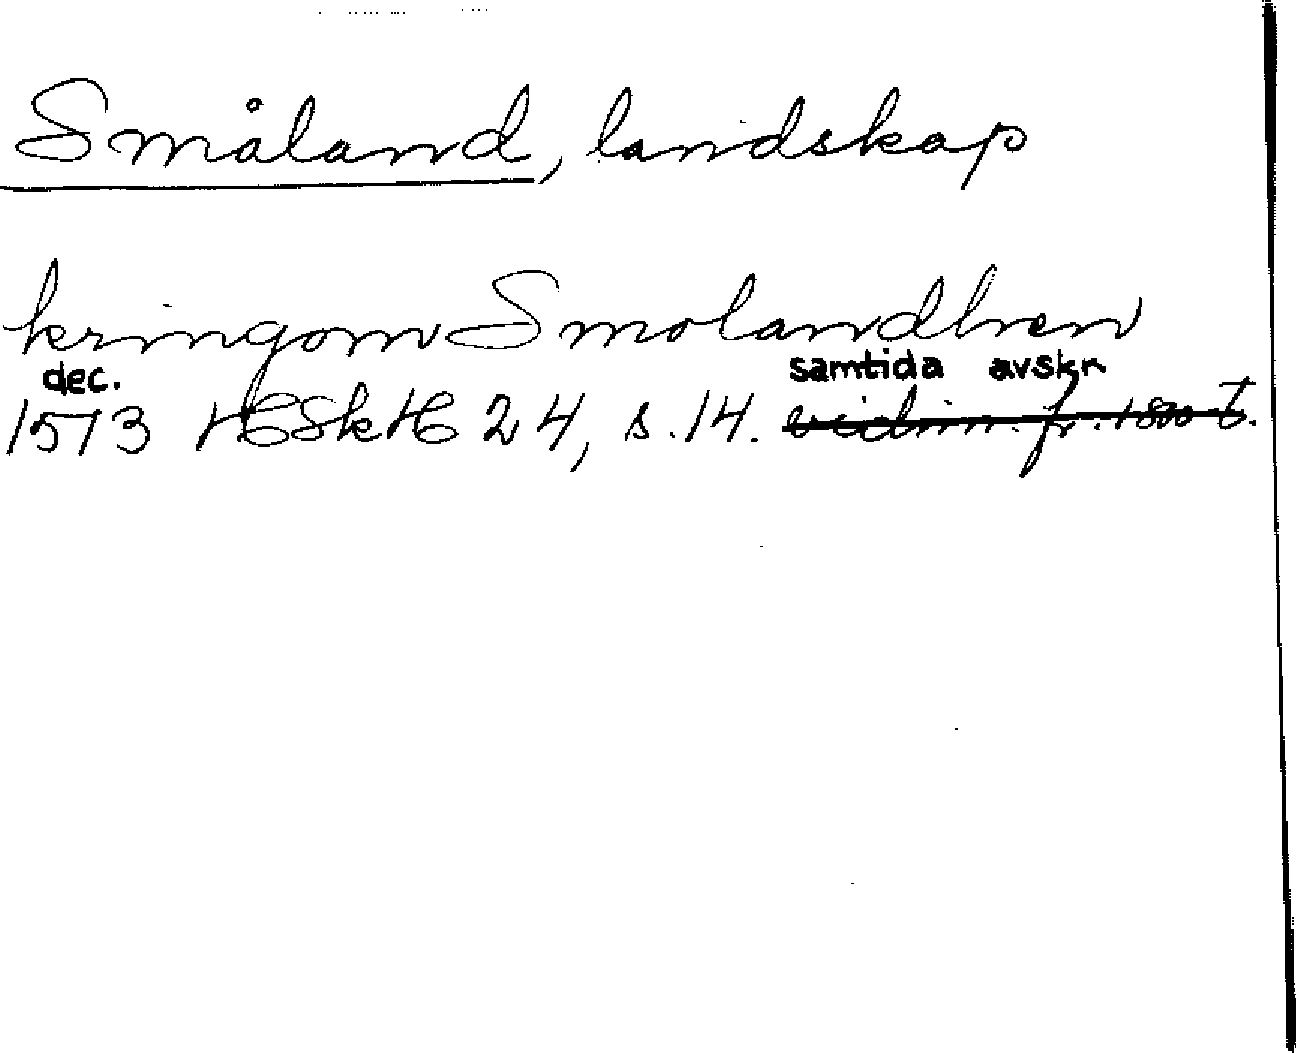 Småland, landskap
kringom Smolandhen
dec. samtida avskr.
1573 HSkH 24, s. 14. vidim. fr. 1800-t.